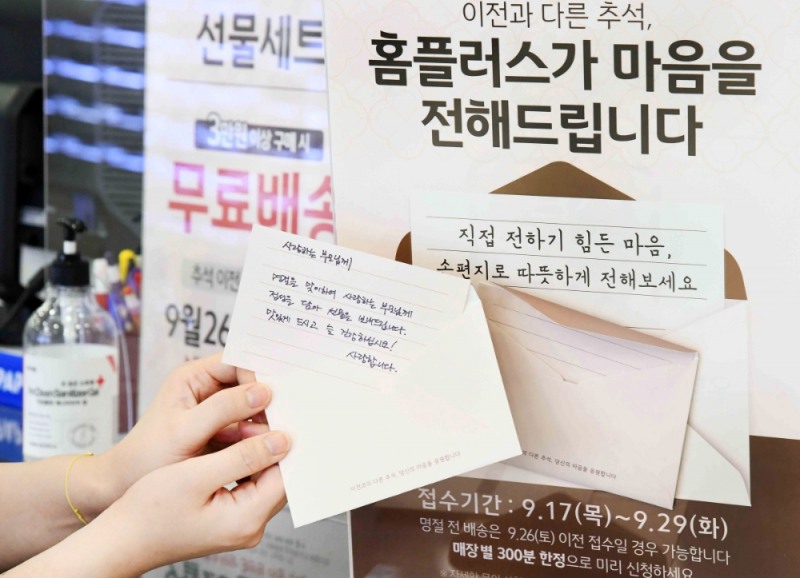 선물세트
3만원 이상 구매 시
무료배송
추석 이전
9월 26
이전과 다른 추석,
홈플러스가 마음을
전해드립니다
직접 전하기 힘든 마음,
손편지로 따뜻하게 전해보세요
사랑하는 부모님께
명절을 맞이하여 사랑하는 부모님께
정성을 담아 선물을 보내드립니다.
맛있게 드시고 늘 건강하십시오!
사랑합니다.
이전과 다른 추석, 당신의 마음을 응원합니다
접수기간 : 9.17(목)~9.29(화)
명절 전 배송은 9.26(토) 이전 접수일 경우 가능합니다
매장별 300분 한정으로 미리 신청하세요
Clean Sanitizer Gel